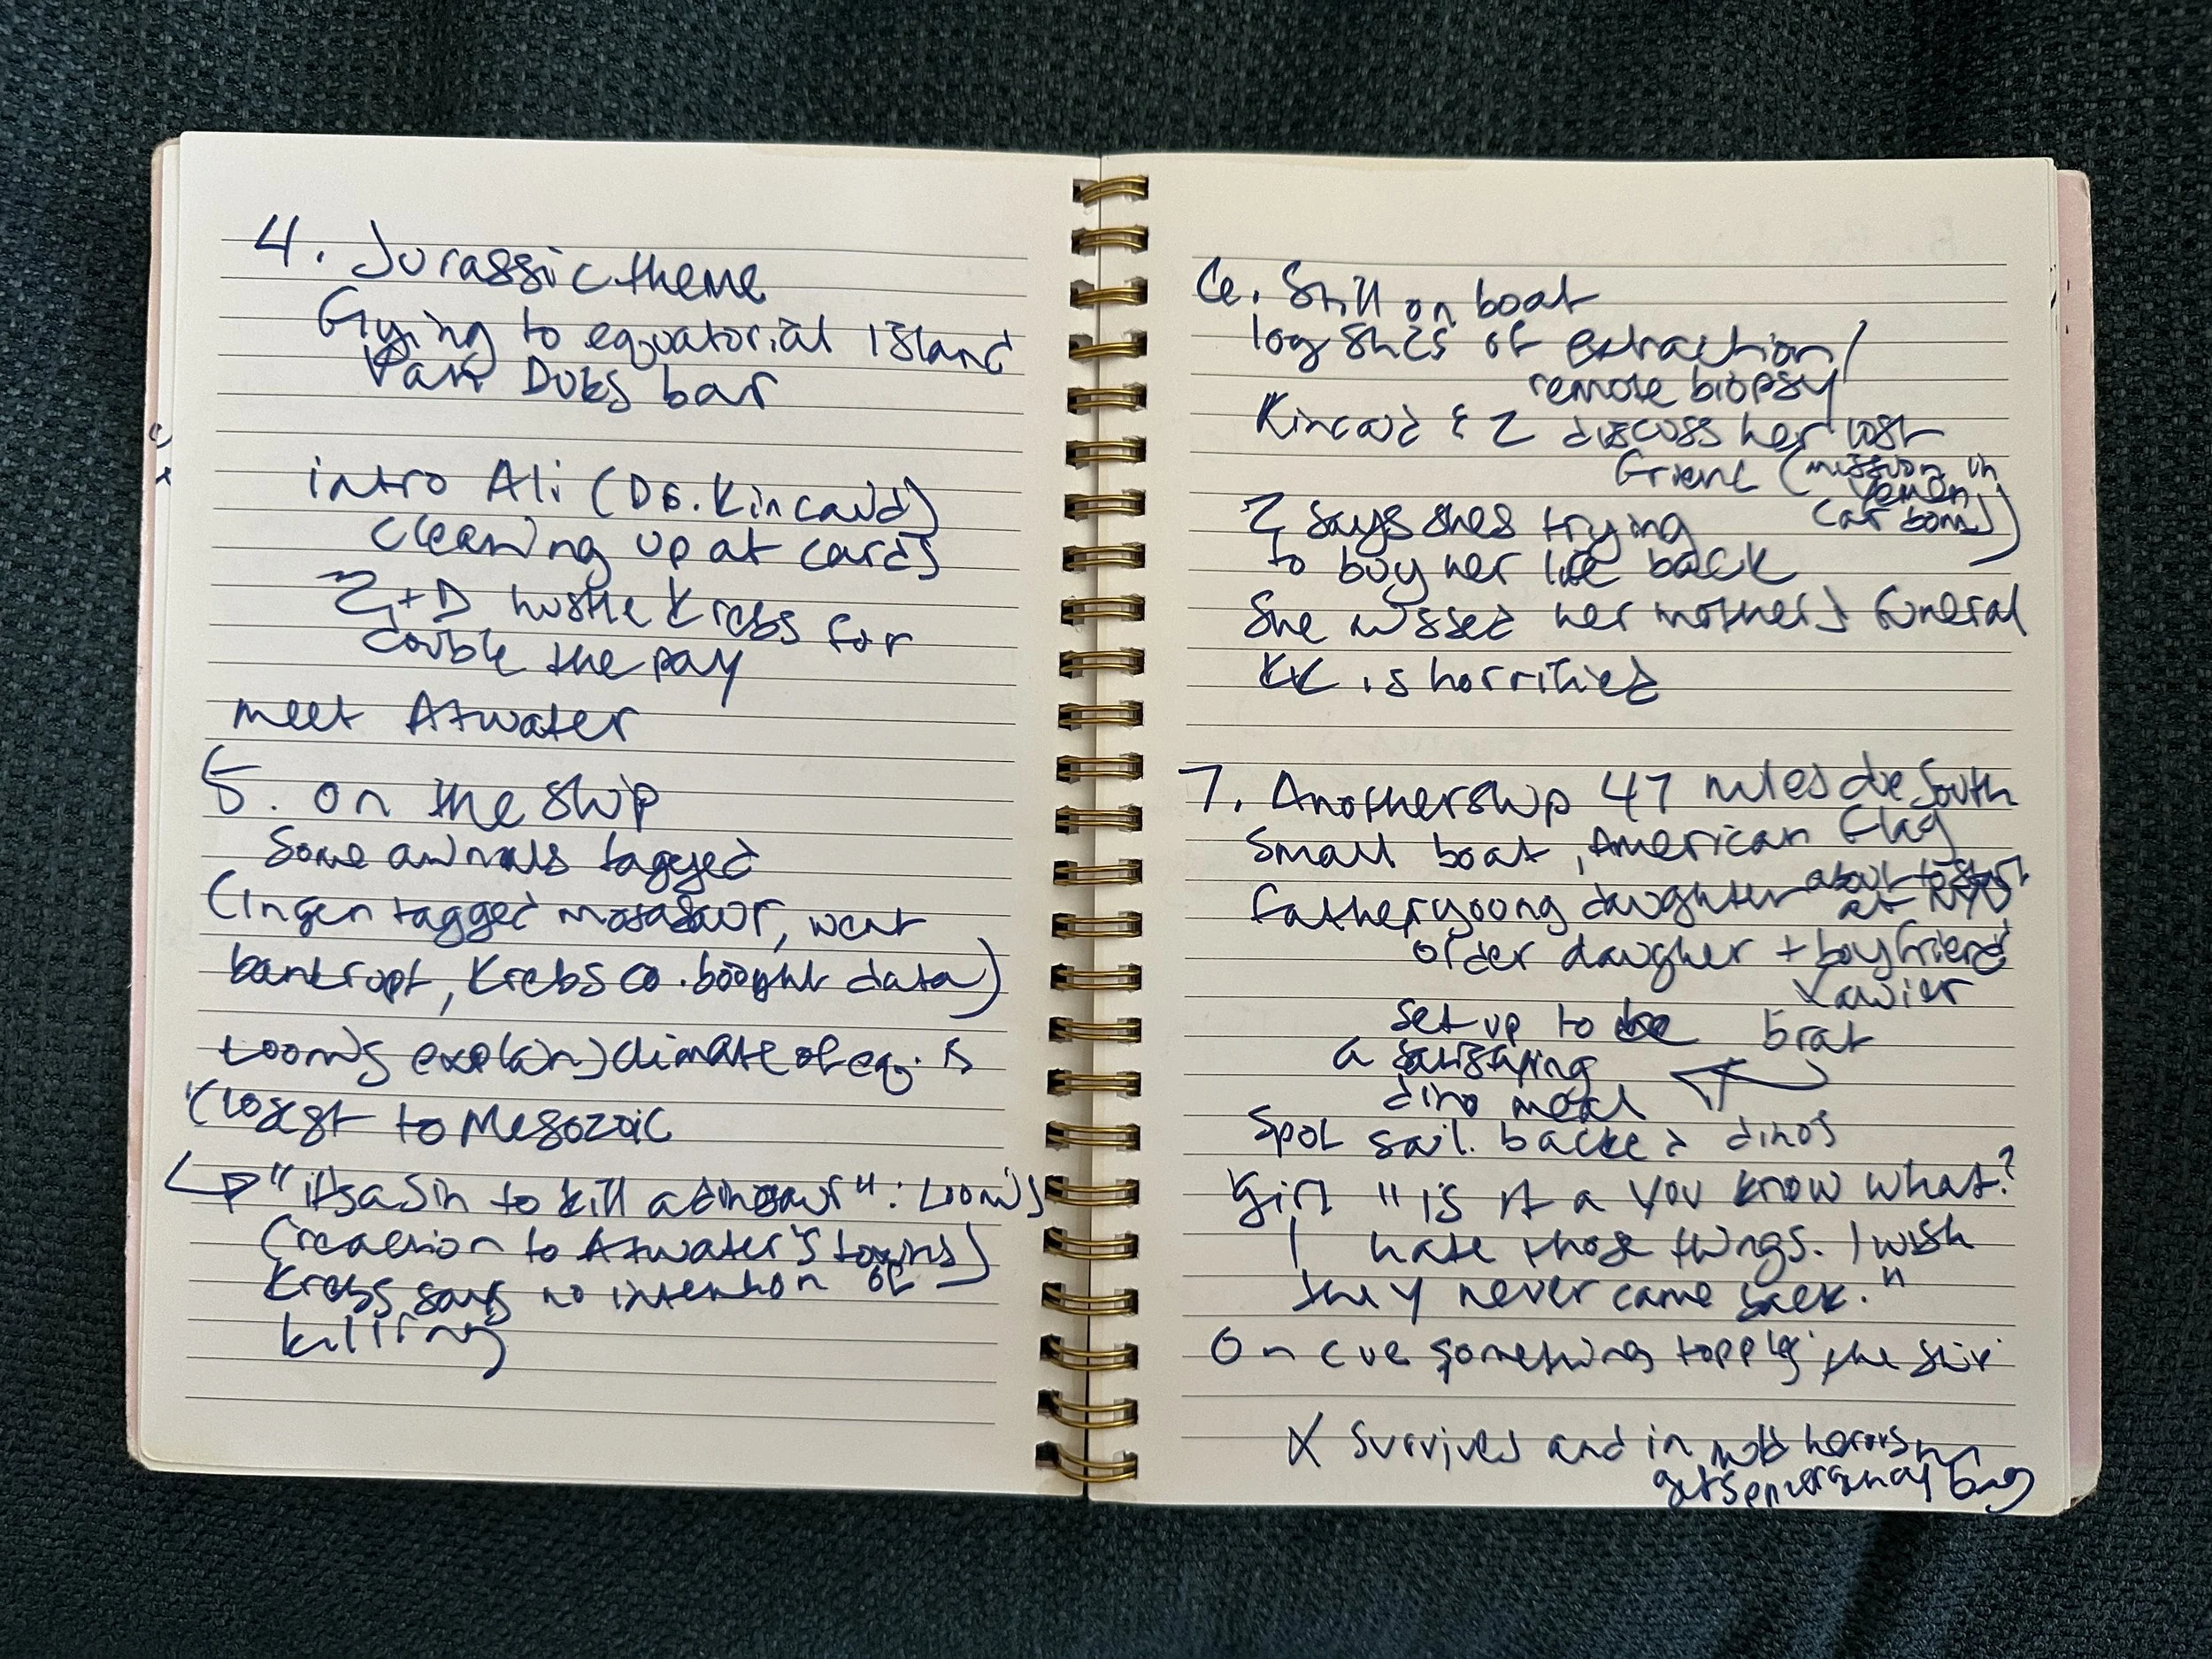 4. Jurassic theme
Flying to equatorial island
Park Dubs bar
intro Ali (Dr. Kincaid)
cleaning up at cards
Z + D hustle Krebs for
double the pay
meet Atwater
5. on the ship
Some animals tagged
(Ingen tagged mosasaur, went
bankrupt, Krebs co. bought data)
Loomis explains climate of eq. is
closest to Mesozoic
↳ "its a sin to kill a dinosaur": Loomis
(reaction to Atwater's toxins)
Krebs says no intention of
killing
6. Still on boat
logistics of extraction/
remote biopsy
Kincaid & Z discuss her lost
friend (mission in
Yemen,
car bomb)
Z says shes trying
to buy her life back
She missed her mother's funeral
KK is horrified
7. Another ship 47 miles due South
Small boat, American flag
father young daughter about to start
at NYU
older daugher + boyfriend
Xavier
set up to be brat
a satisfying
dino meal
Spot sail backed dinos
Girl "is it a you know what?
I hate those things. I wish
they never came back."
On cue something topples the ship
X survives and in mild heroism
gets emergency bag